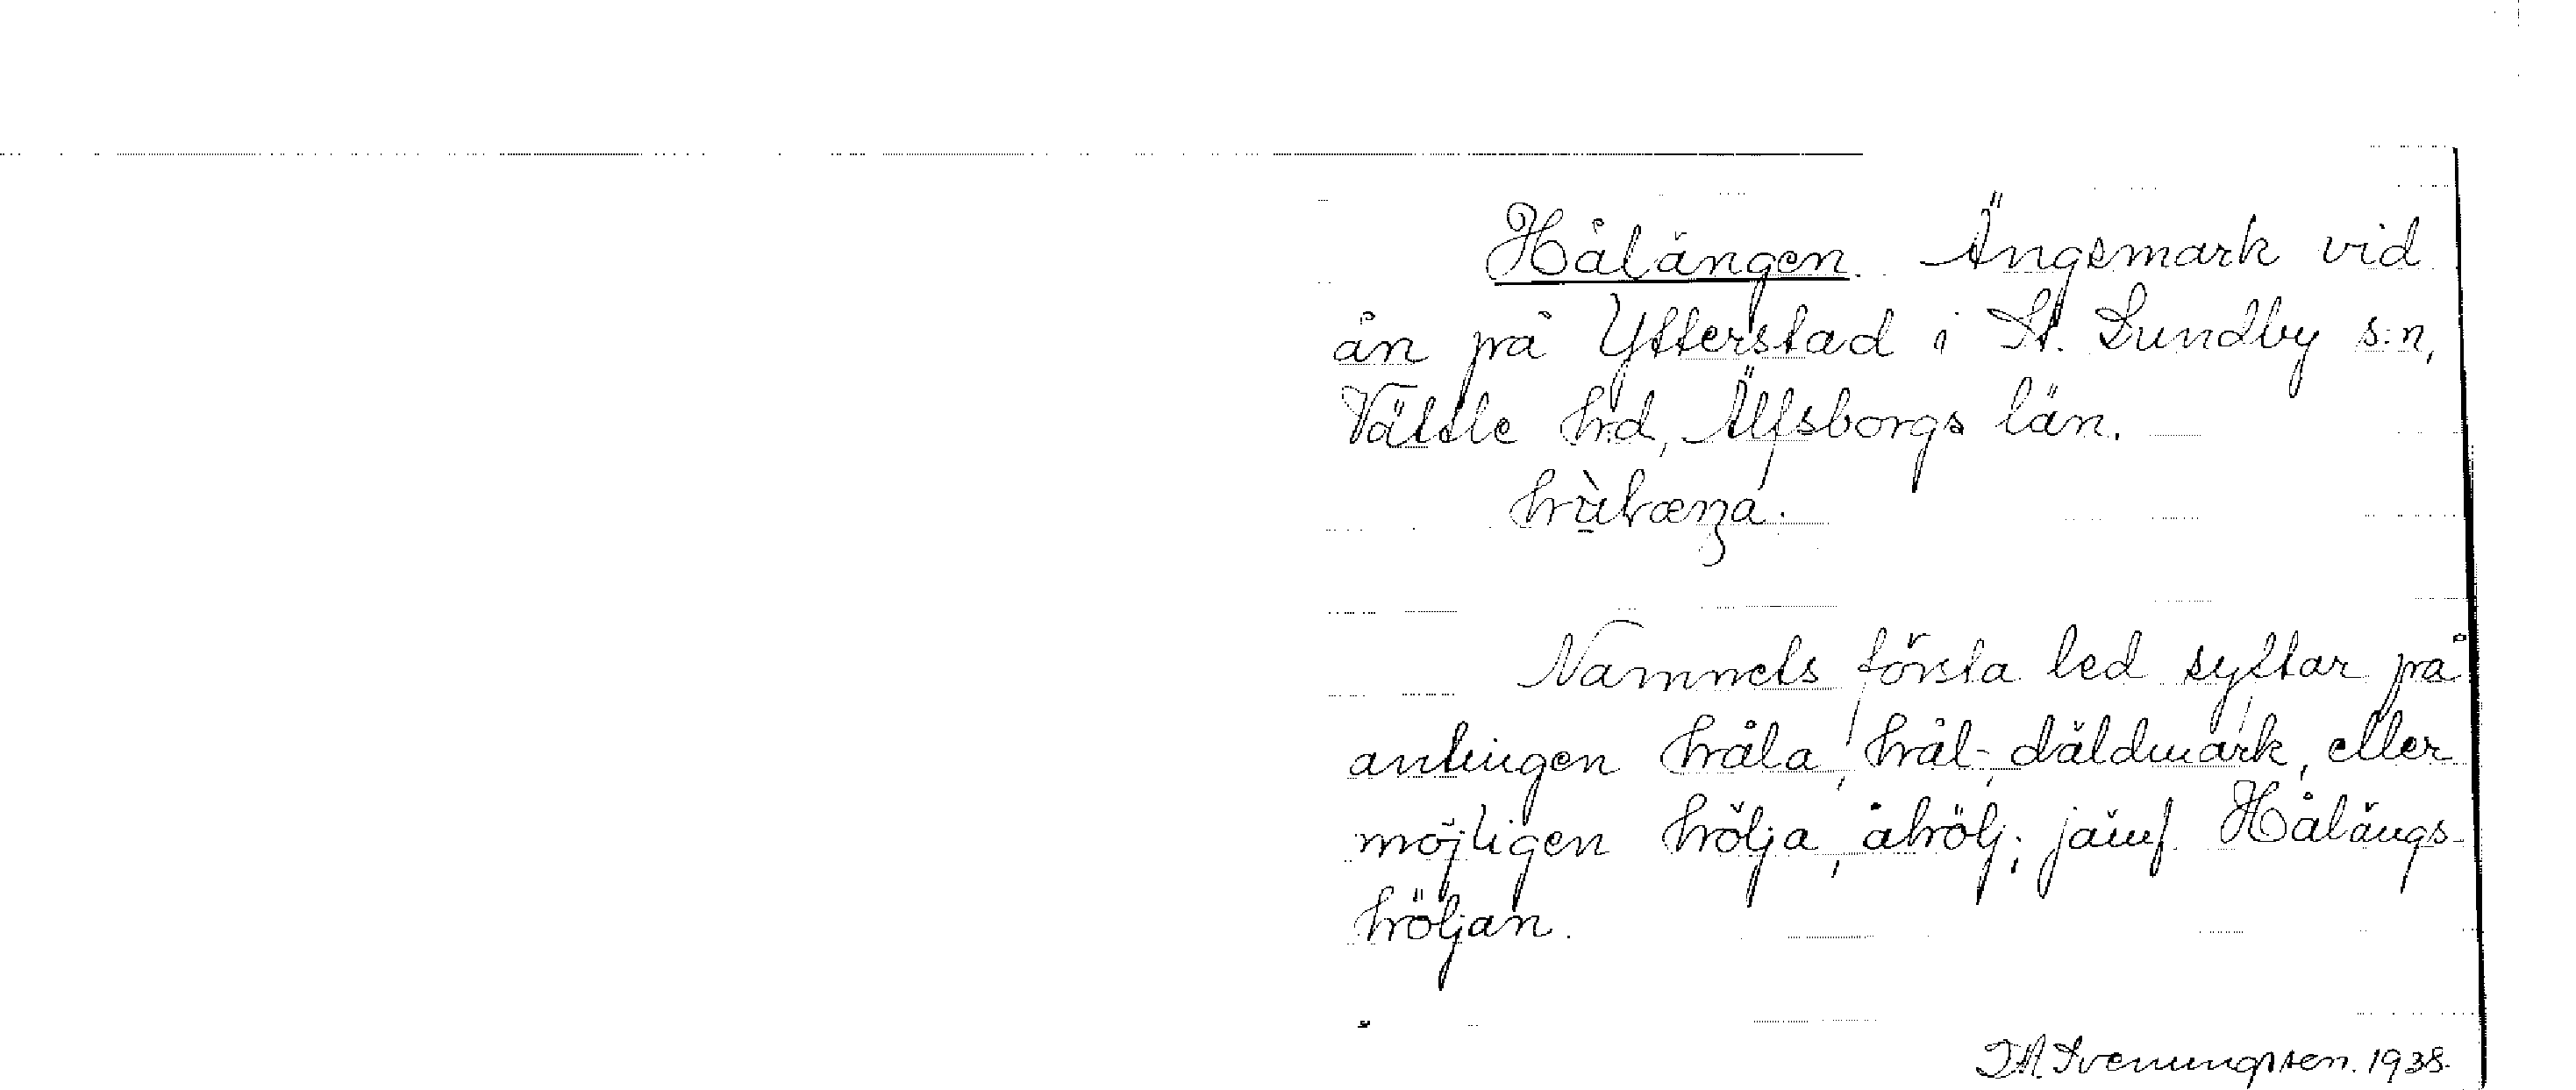 Hålängen. Ängsmark vid
ån på Ytterstad i St. Lundby s:n,
Vättle hd, Älfsborgs län.
Namnets första led syftar på
antingen håla, hål-, däldmark, eller
möjligen hölja, åhölj; jämf. Hålängs-
höljan.
1938.